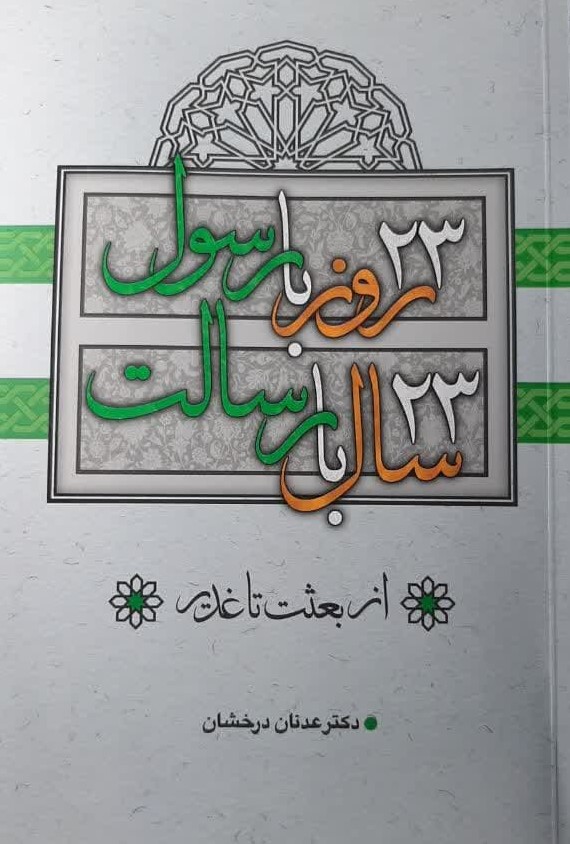 ۲۳ روز با رسول
۲۳ سال با رسالت
از بعثت تا غدیر
دکتر عدنان درخشان